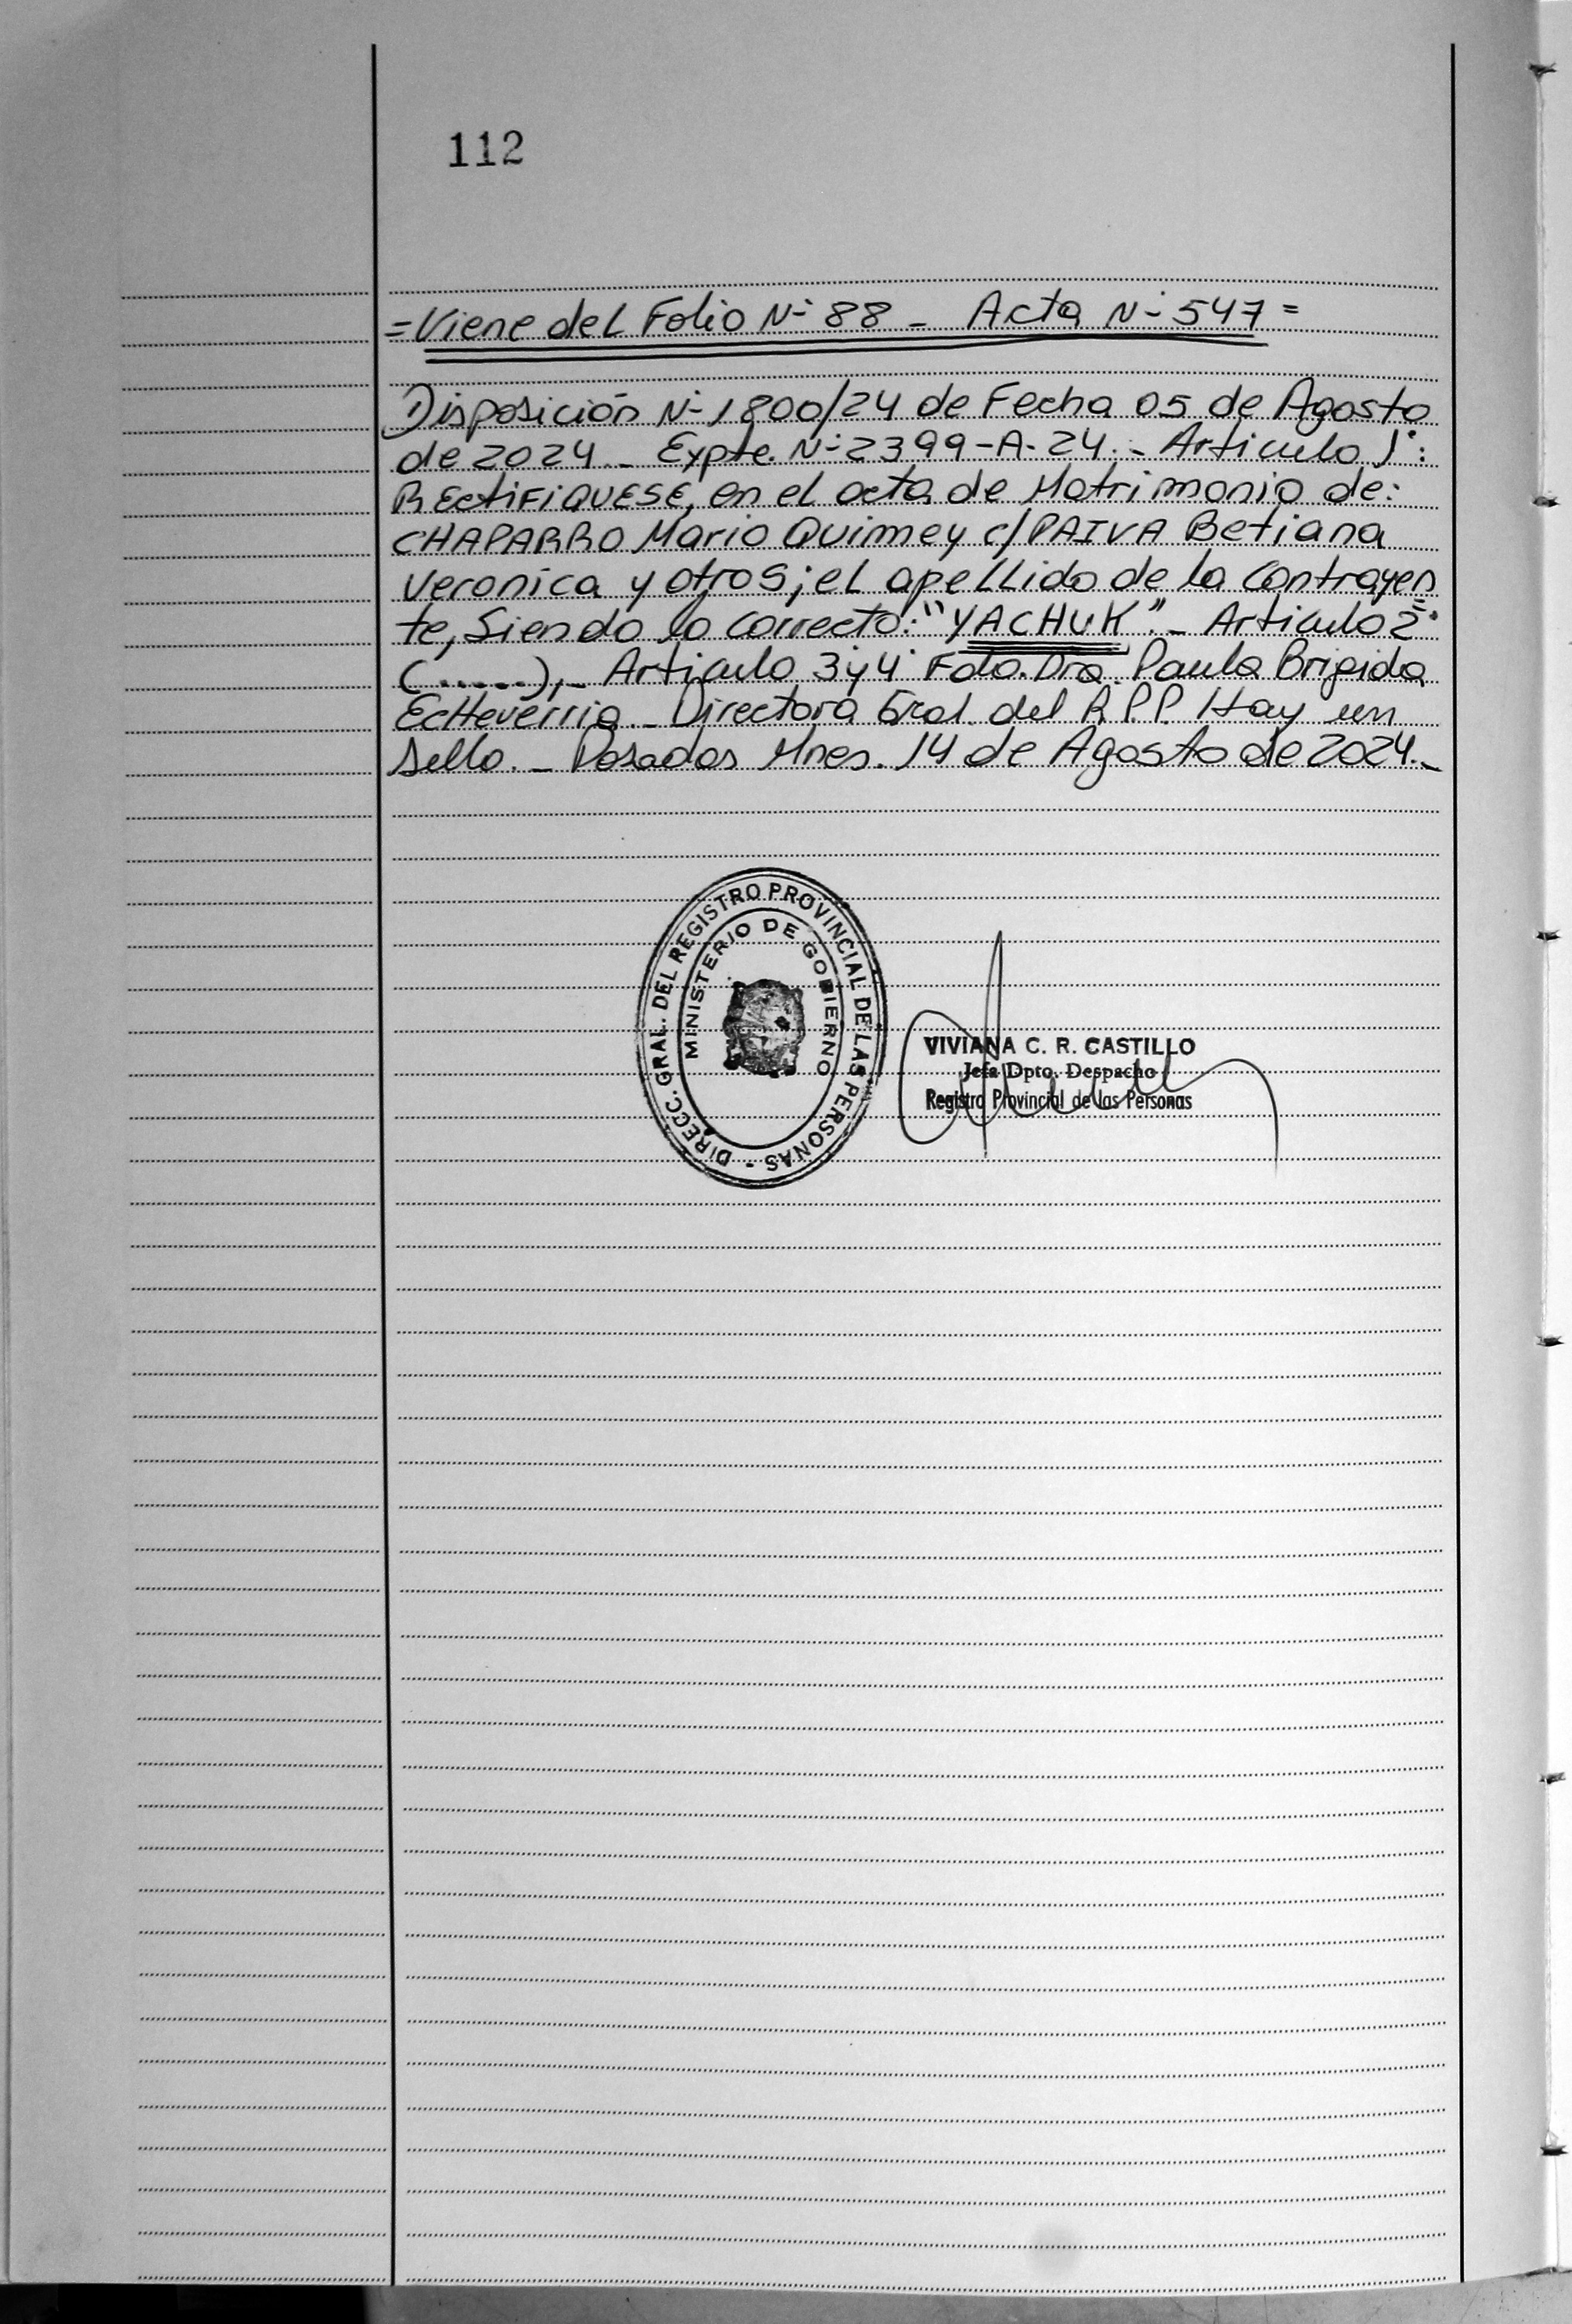 112
=Viene del Folio Nº 88 - Acta Nº 547=
Disposición Nº 1800/24 de Fecha 05 de Agosto
de 2024.- Expte. Nº 2399-A-24.- Articulo 1°:
RECtiFiQUESE, en el acta de Matrimonio de:
CHAPARRO Mario Quimey c/PAIVA Betiana
Veronica y otros; el apellido de la Contrayen
te, Siendo lo Correcto: "YACHUK".- Articulo 2°
(.....),- Articulo 3°y4° Fdo. Dra. Paula Brigida
EcHeverria.- Directora Gral. del R.P.P. Hay un
sello.- Posadas Mnes. 14 de Agosto de 2024.-
DIRECC. GRAL. DEL REGISTRO PROVINCIAL DE LAS PERSONAS -
MINISTERIO DE GOBIERNO
VIVIANA C. R. CASTILLO
Jefa Dpto. Despacho
Registro Provincial de las Personas